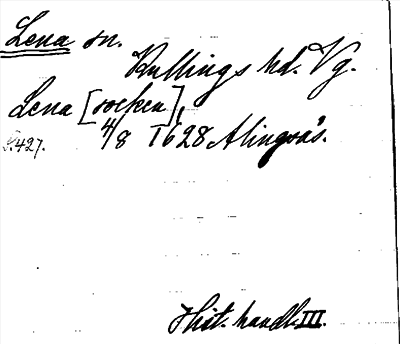 Lena sn.
Kullings hd. Vg.
Lena [socken],
S. 427. 4/8 1628 Alingsås.
Hist. handl. III.